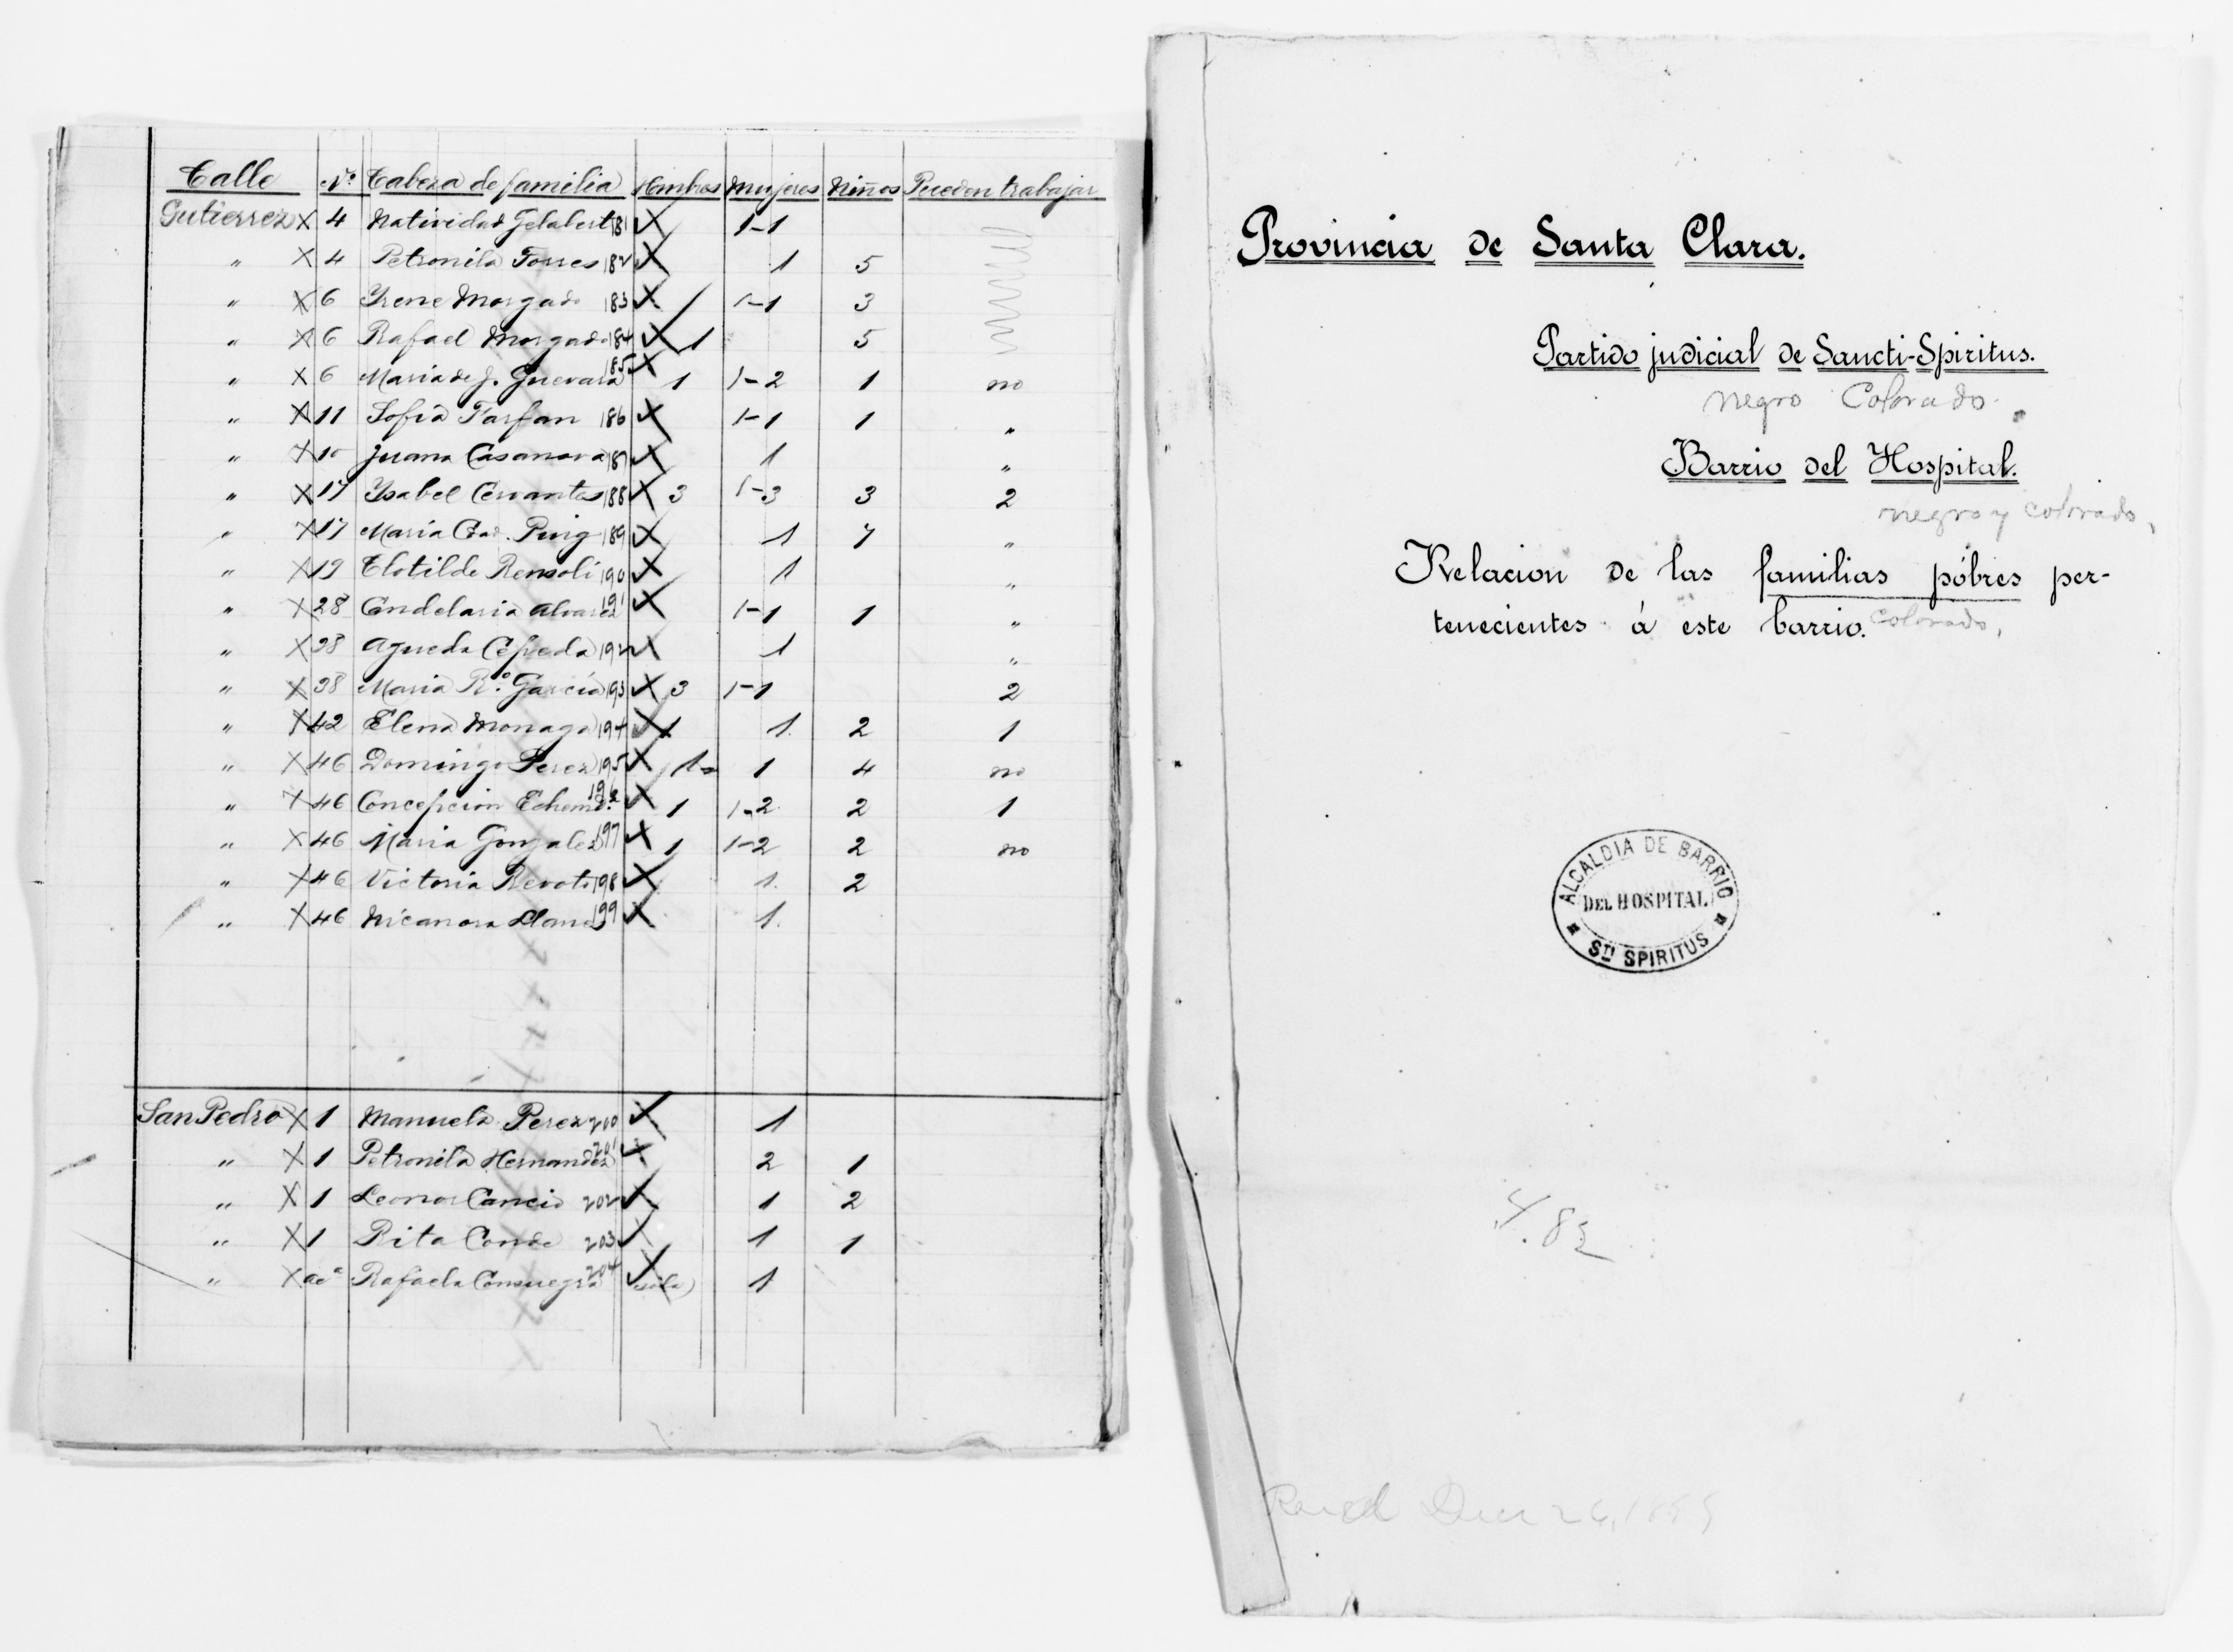 Calle Nº Cabeza de familia Hombres Mujeres Niños Pueden trabajar
Gutierrez X 4 Natividad Gelabert 181 X 1-1
" X 4 Petronila Torres 182 X 1 5
" X 6 Yrene Morgado 183 X 1-1 3
" X 6 Rafael Morgado 184 X 1 5
" X 6 Maria de J. Guevara 185 X 1 1-2 1 no
" X 11 Sofia Farfan 186 X 1-1 1 "
" X 10 Juana Casanova 187 X 1 "
" X 17 Ysabel Cervantes 188 X 3 1-3 3 2
" X 17 Maria Puig 189 X 1 7 "
" X 19 Clotilde Rensoli 190 X 1 "
" X 28 Candelaria Alvarez 191 X 1-1 1 "
" X 38 Agueda Cepeda 192 X 1 "
" X 38 Maria Rº. Garcia 193 X 3 1-1 2
" X 42 Elena Monaga 194 X 1 1. 2 1
" X 46 Domingo Perez 195 X 1 1 4 no
" X 46 Concepcion 196 X 1 1-2 2 1
" X 46 Maria Gonzalez 197 X 1 1-2 2 no
" X 46 Victoria 198 X 1. 2
" X 46 Nicanora Llanes 199 X 1.
San Pedro X 1 Manuela Perez 200 X 1
" X 1 Petronila Hernandez 201 X 2 1
" X 1 Leonor Cancio 202 X 1 2
" X 1 Rita Conde 203 X 1 1
" X acª Rafaela Consuegra 204 X (sola) 1
Provincia de Santa Clara.
Partido judicial de Sancti-Spiritus.
negro Colorado.
Barrio del Hospital.
negro y colorado,
Relacion de las familias pobres per-
tenecientes á este barrio. colorado,
ALCALDIA DE BARRIO
DEL HOSPITAL
STI SPIRITUS
Recd Dec 26, 1899